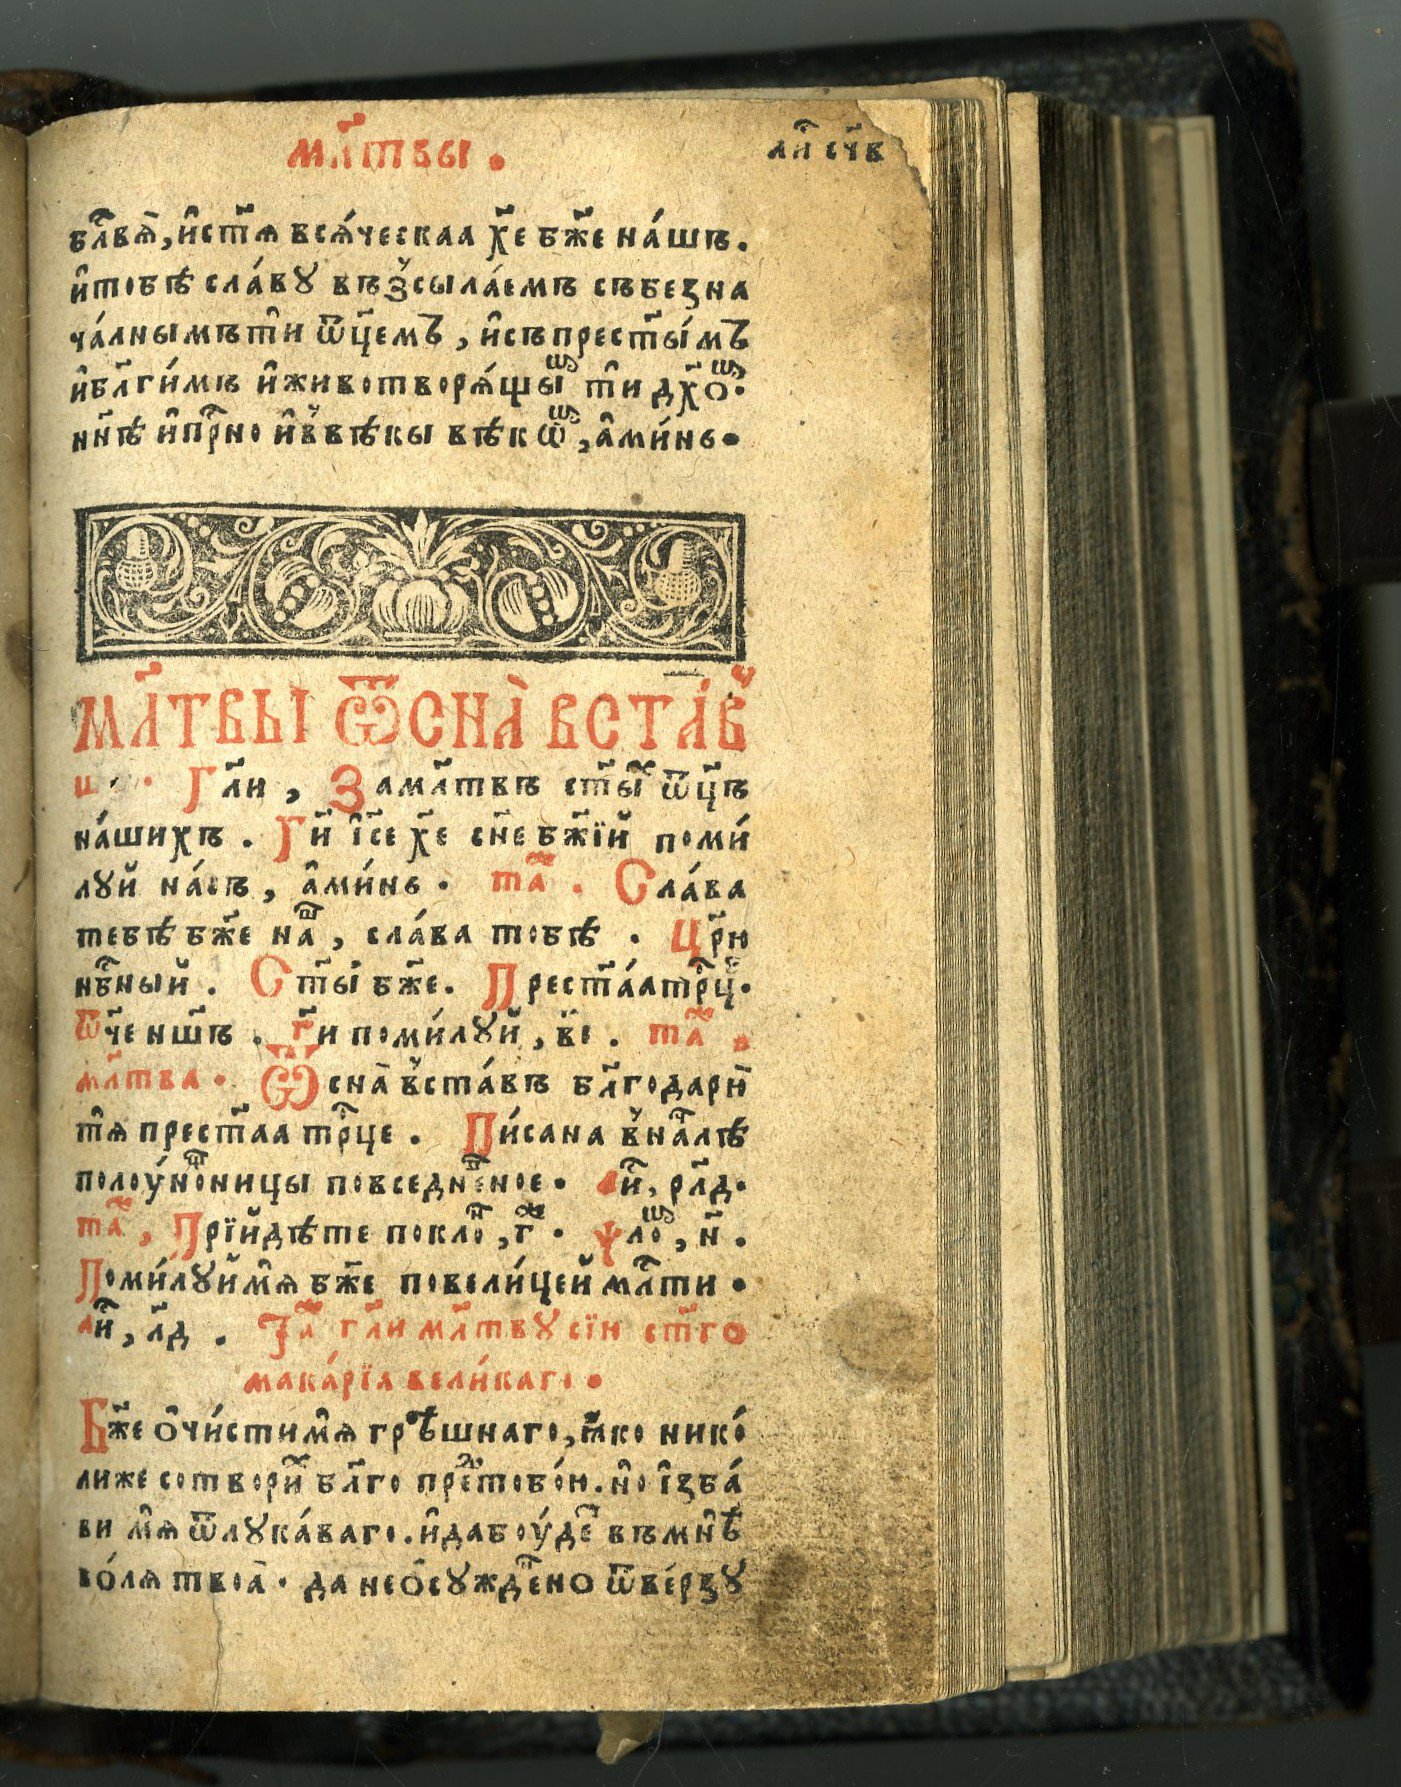 мл҃твы .
ли҃ сч҃в
бл҃вѧ̀, и҆ст҃ѧ всѧ́ческаа хе҃ бж҃е на́шъ.
и҆тобѣ сла́вꙋ въз̾сыла́емъ събезна
ча́лнымъти҆ ѿц҃емъ, и҆съпрест҃ы́мъ
и҆бл҃ги́мъ и҆животворѧ́щыⷨ ти҆ дх҃оⷨ.
нн҃ѣ и҆пр҇но и҆в̾вѣки вѣкѡⷨ, а҆ми́нь.
мл҃твы ѿсна̀ вста́в
ш . Гл҃и, Замл҃твъ ст҃ыⷯ ѿц҃ъ
на́шихъ. Ги҃ і҆с҃е хе҃ сн҃е бж҃їй поми́
лꙋй на́съ, а҆ми́нь. таⷤ . Сла́ва
тебѣ бж҃е наⷲ, сла́ва тобѣ . Цр҃ю
нб҇ный. Ст҃ы́ бж҃е. Прест҃а́атрⷪ҇ц.
Ѿч҃е нш҃ъ. ги҃ поми́лꙋй, в҃і. таⷤ .
мл҃тва. Ѿсна̀ в̾ста́въ бл҃годарю̀
тѧ҆ прест҃аа трⷪ҇це. Пи́сана в̾наⷱлѣ
полоу́ноⷳницы повседнеⷡное. ли҃, рл҃д.
таⷤ, Прїйдѣте поклоⷩ, г҃ⷤ. ѱаⷧоⷨ, н҃.
Поми́лꙋймѧ̀ бж҃е повели́цеймл҇ти.
ли҃, л҃д . Таⷤ гл҃и мл҃твꙋ сїю ст҃го
мака́рїа вели́каго.
Бж҃е ѻ҆чи́стимѧ̀ грѣ́шнаго, ꙗ҆ко нико́
лиже сотвориⷯ бл҃го преⷣтобо́ю. но̀ і҆зба́
ви мѧ̀ ѿлꙋка́ваго. и҆дабоу́деⷮ въмнѣ̀
во́лѧ твоа̀. да неѻ҆сꙋждеⷩно ѿве́рзꙋ